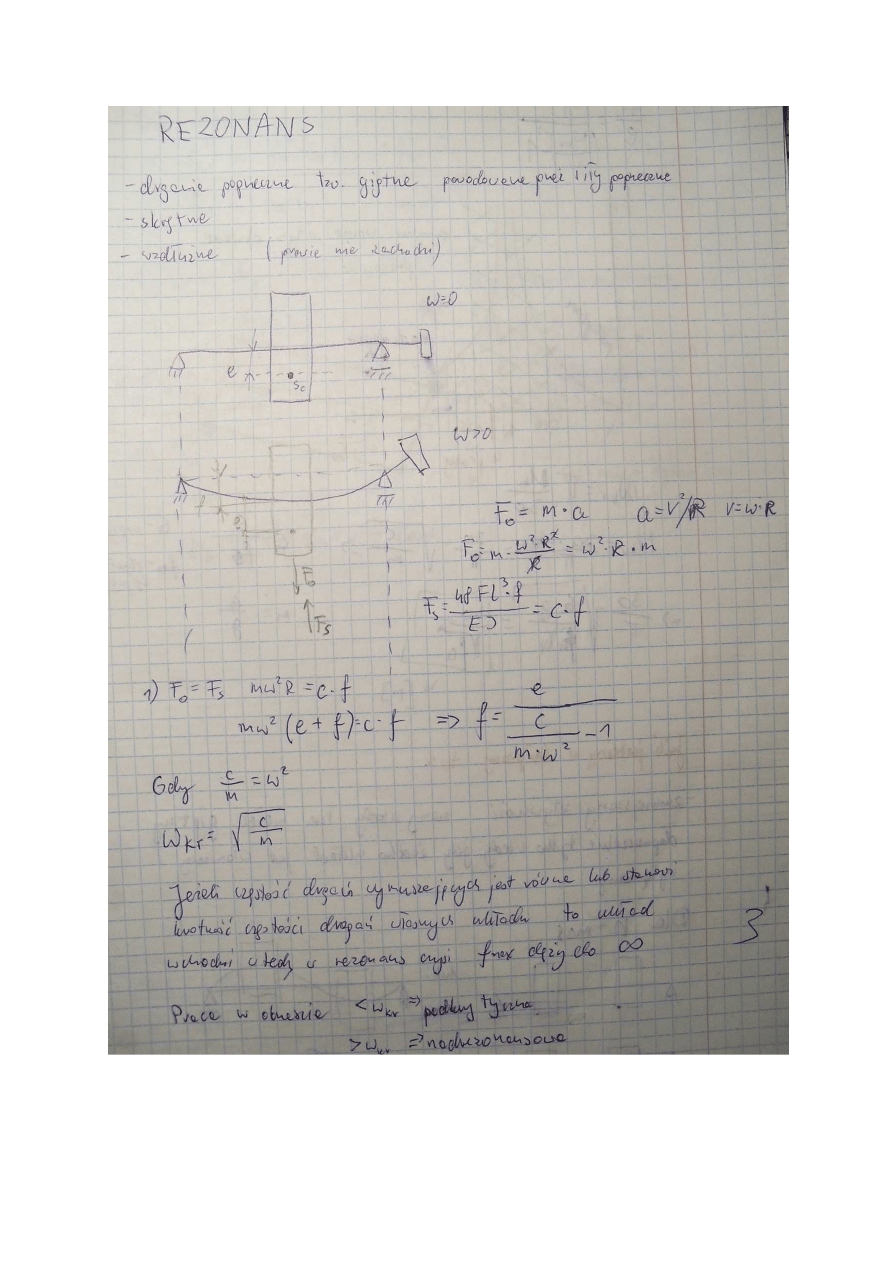 REZONANS
- drganie poprzeczne tzw. giętne powodowane przez siły poprzeczne
- skrętne
- wzdłużne (prawie nie zachodzi)
ω=0
e
Sc
ω>0
f
e
F₀ = m·a a=V²/R V=ω·R
F₀=m·ω²·R²/R = ω²·R·m
Fs = 48Fl³·f/EJ = c·f
F₀
Fs
1) F₀ = Fs mω²R = c·f
mω²(e+f)=c·f => f = e/(c/(m·ω²) -1)
Gdy c/m = ω²
ωkr = √(c/m)
Jeżeli częstość drgań wymuszających jest równa lub stanowi
krotność częstości drgań własnych układu to układ
wchodzi wtedy w rezonans czyli fmax dąży do ∞
3
Praca w obrezie <ωkr => podkrytyczna
>ωkr => nadrezonansowa